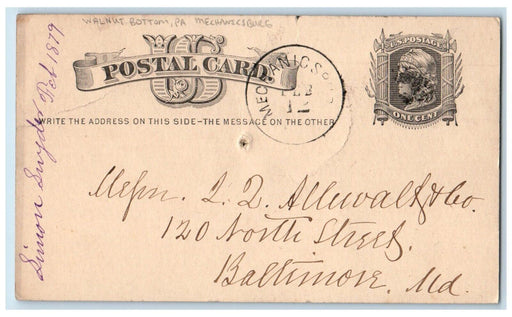 WALNUT BOTTOM, PA MECHANICSBURG
US
POSTAL CARD.
WRITE THE ADDRESS ON THIS SIDE-THE MESSAGE ON THE OTHER
MECHANICSBURG
FEB
12
U.S. POSTAGE
ONE CENT
Simon Snyder Oct 1879
Messrs. L. D. Allewalt & Co.
120 North Street.
Baltimore, Md.